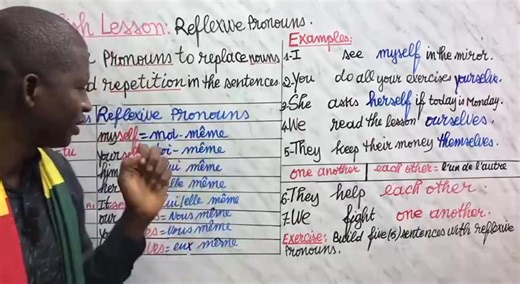 sh Lesson: Reflexive Pronouns.
Pronouns to replace nouns
d repetition in the sentences.
Reflexive Pronouns
myself = moi-même
yourself oi-même
him ui même
her lle même
It ui/elle même
our = Nous même
Vous même
ves = eux même
Examples:
1-I see myself in the miror.
2-You do all your exercises yourselve.
3-She asks herself if today is Monday.
4-We read the lesson ourselves.
5-They keep their money themselves.
one another each other = l'un de l'autre
6-They help each other.
7-We fight one another.
Exercise: Build five(5) sentences with reflexive
Pronouns.